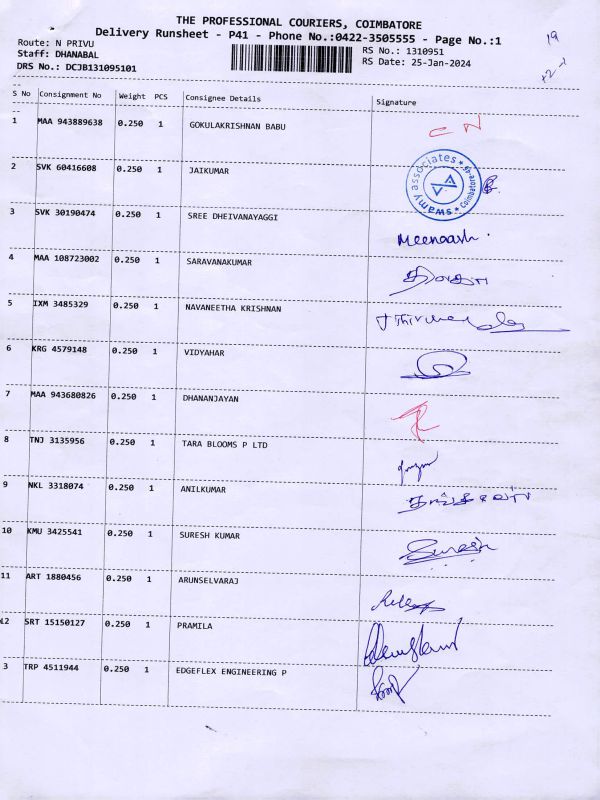 THE PROFESSIONAL COURIERS, COIMBATORE
Delivery Runsheet - P41 - Phone No.:0422-3505555 - Page No.:1
Route: N PRIVU RS No.: 1310951
Staff: DHANABAL RS Date: 25-Jan-2024
DRS No.: DCJB131095101
19
S No Consignment No Weight PCS Consignee Details Signature
1 MAA 943889638 0.250 1 GOKULAKRISHNAN BABU
2 SVK 60416608 0.250 1 JAIKUMAR swamy associates * Coimbatore-45 *
3 SVK 30190474 0.250 1 SREE DHEIVANAYAGGI Meenaash
4 MAA 108723002 0.250 1 SARAVANAKUMAR
5 IXM 3485329 0.250 1 NAVANEETHA KRISHNAN
6 KRG 4579148 0.250 1 VIDYAHAR
7 MAA 943680826 0.250 1 DHANANJAYAN
8 TNJ 3135956 0.250 1 TARA BLOOMS P LTD
9 NKL 3318074 0.250 1 ANILKUMAR
10 KMU 3425541 0.250 1 SURESH KUMAR Suresh
11 ART 1880456 0.250 1 ARUNSELVARAJ
12 SRT 15150127 0.250 1 PRAMILA
3 TRP 4511944 0.250 1 EDGEFLEX ENGINEERING P